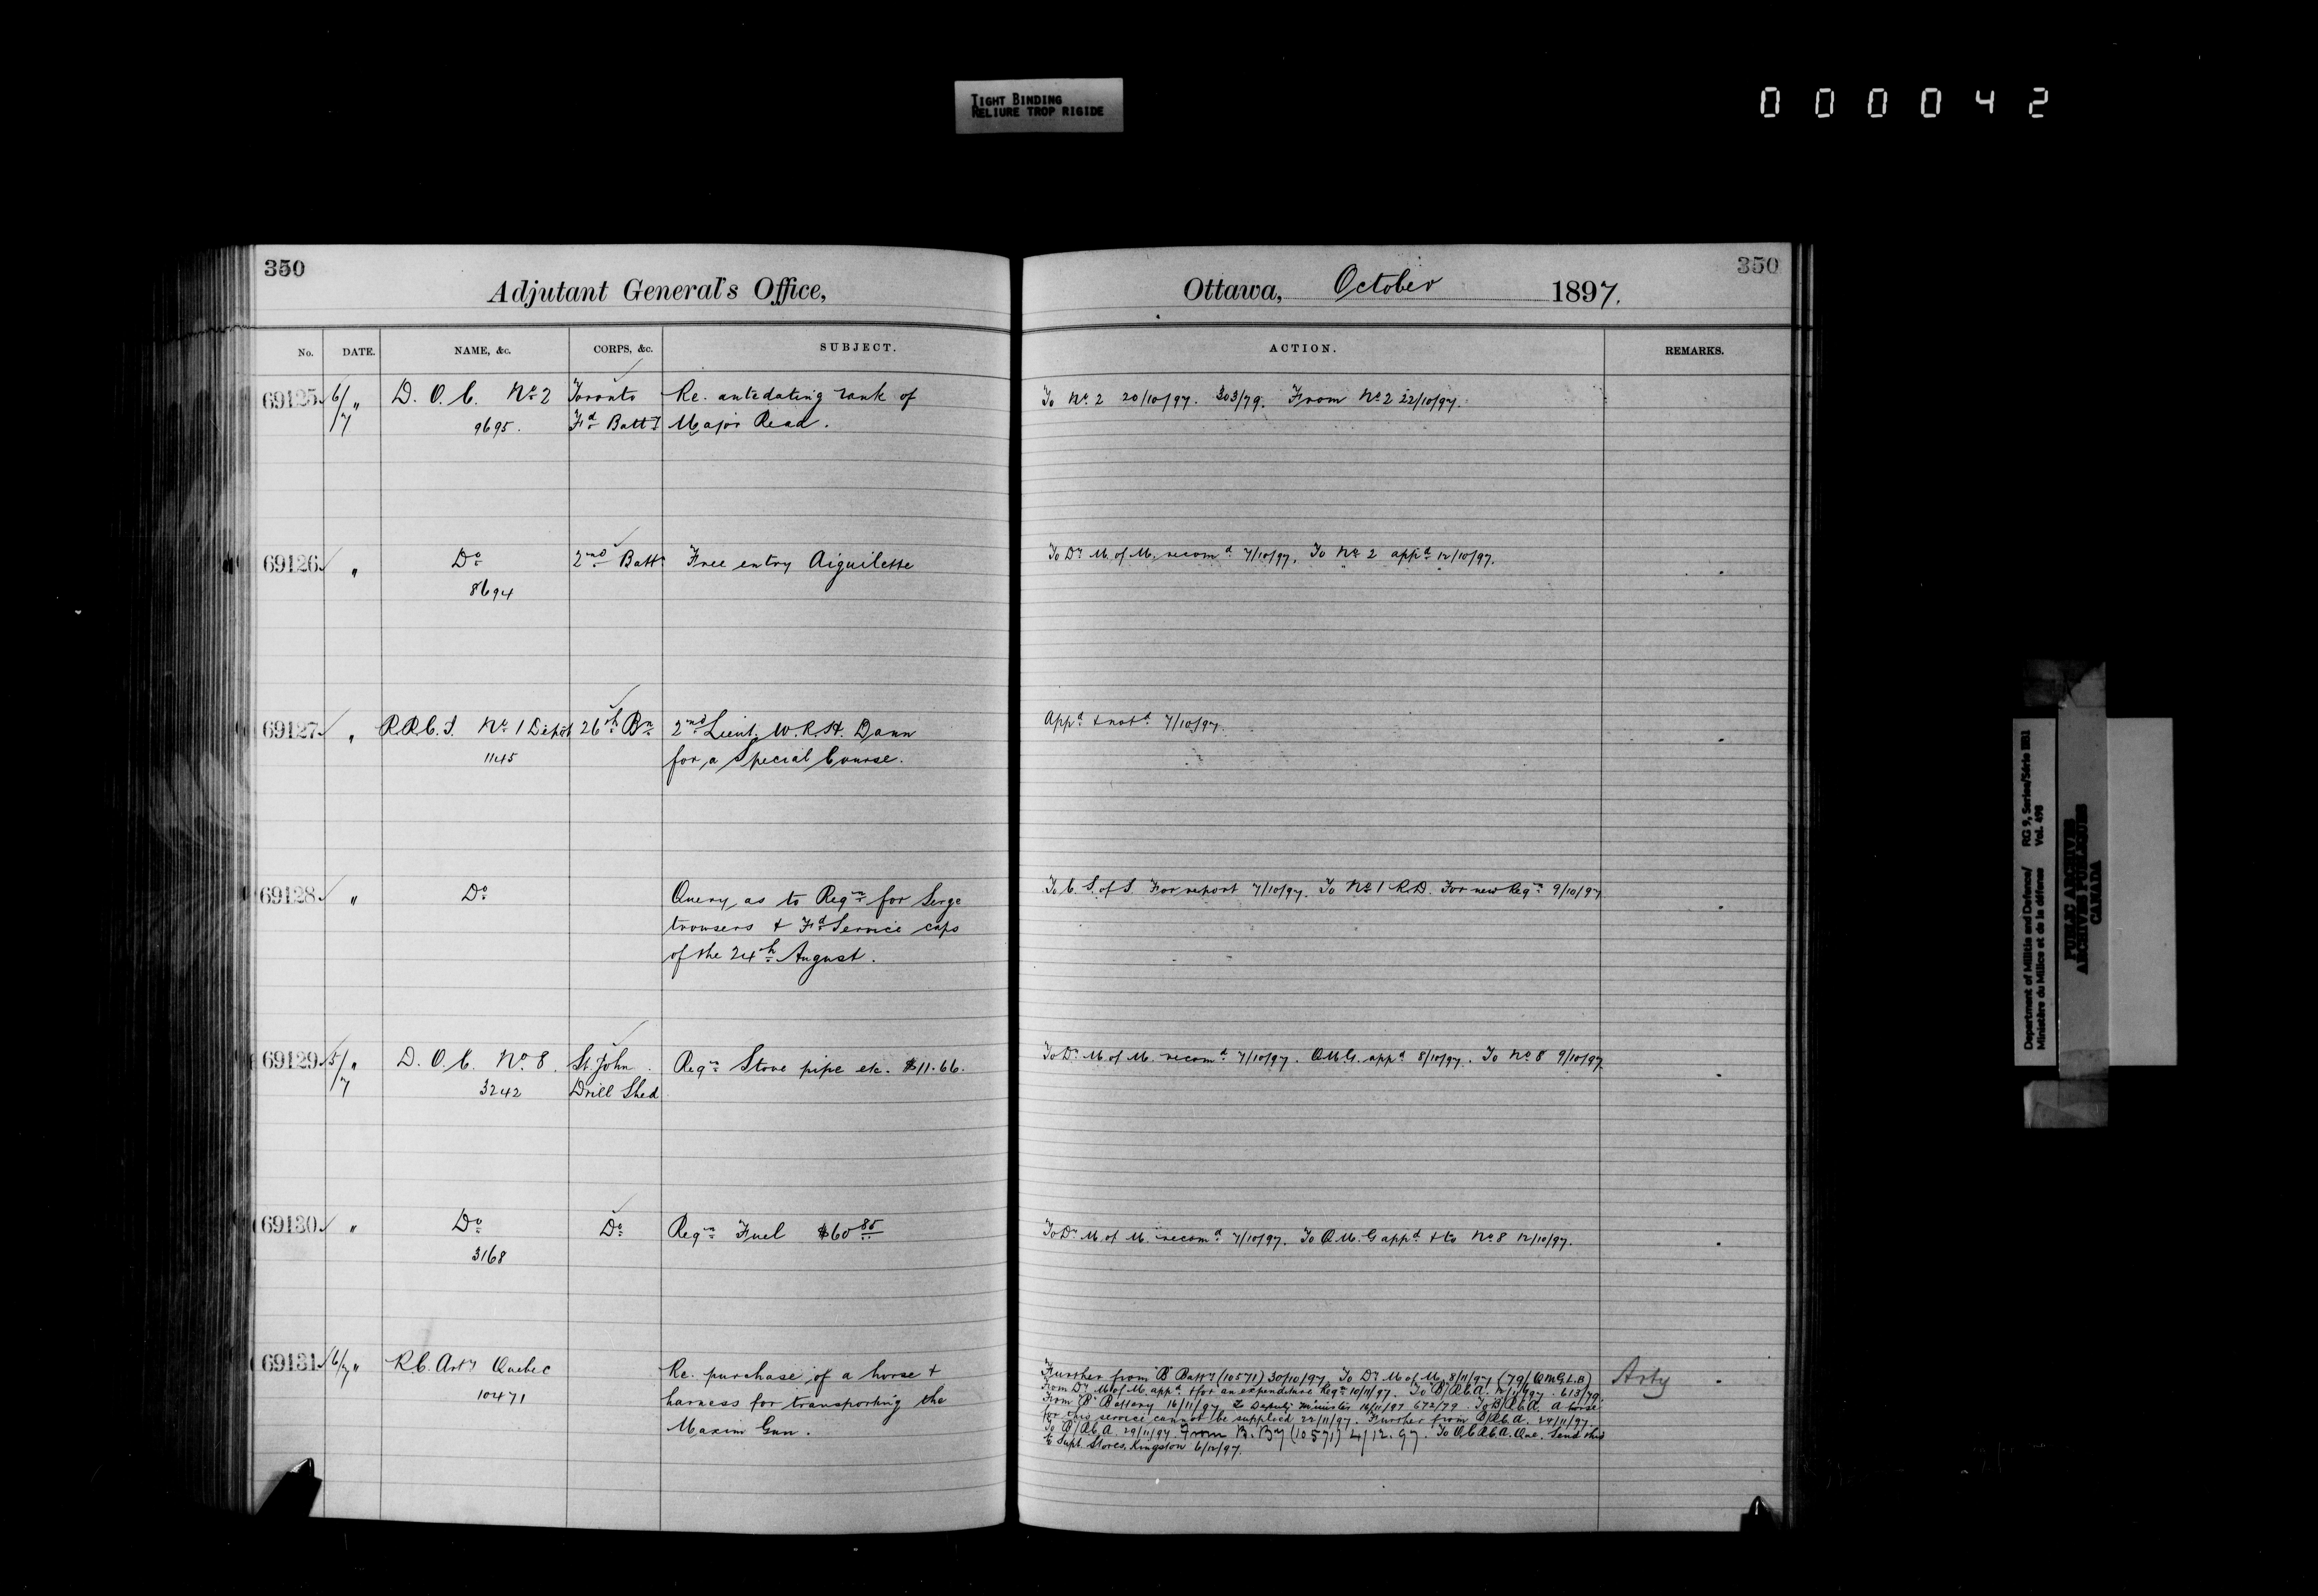 TIGHT BINDING
RELIURE TROP RIGIDE
000042
350
Adjutant General's Office,
Ottawa, October 1897.
350
No. DATE. NAME, &c. CORPS, &c. SUBJECT. ACTION. REMARKS.
69125 6/7 " D. O. C. No 2 Toronto Re. antedating rank of To No 2 20/10/97. 303/79. From No 2 22/10/97.
9695. Fd Batty Major Read.
69126 " Do 2nd Battn Free entry Aiguilette To Dr M. of M. recomd 7/10/97. To No 2 appd 12/10/97.
8694
69127 " R.R.C.I. No 1 Depot 26th Bn 2nd Lieut. W. R. H. Dann Appd & notd 7/10/97.
1145 for a Special Course.
69128 " Do Query as to Reqn for Serge To C. S. of S. For report 7/10/97. To No 1 R.D. For new Reqn 9/10/97
trousers & Fd Service caps
of the 24th August.
69129 5/7 " D. O. C. No 8. St. John Reqn Stove pipe etc. $11.66. To Dr M. of M. recomd 7/10/97. QMG. appd 8/10/97. To No 8 9/10/97.
3242 Drill Shed
69130 " Do Do Reqn Fuel $60 85 To Dr M. of M. recomd 7/10/97. To Q.M.G appd & to No 8 12/10/97.
3168
69131 6/7 " R.C. Arty Quebec Re. purchase of a horse &
10471 harness for transporting the
Maxim Gun.
Further from "B" Batty (10571) 30/10/97. To Dr M. of M. 8/11/97 (79/QMG.L.B) Arty
From Dr M. of M. appd & for an expenditure Reqn 10/11/97. To "B"/R.C.A. 613/79.
From "B" Battery 16/11/97 To Deputy Minister 16/11/97 672/79. To B/R.C.A. A horse
for this service cannot be supplied 22/11/97. Further from B/R.C.A. 24/11/97.
To B/R.C.A. 29/11/97. From B. By (10571) 4/12.97. To O.C.R.C.A. Que. Send this
to Supt. Stores, Kingston 6/12/97.
Department of Militia and Defence/ RG 9, Series/Série IIB1
Ministère du Milice et de la défense Vol. 498
PUBLIC ARCHIVES
ARCHIVES PUBLIQUES
CANADA